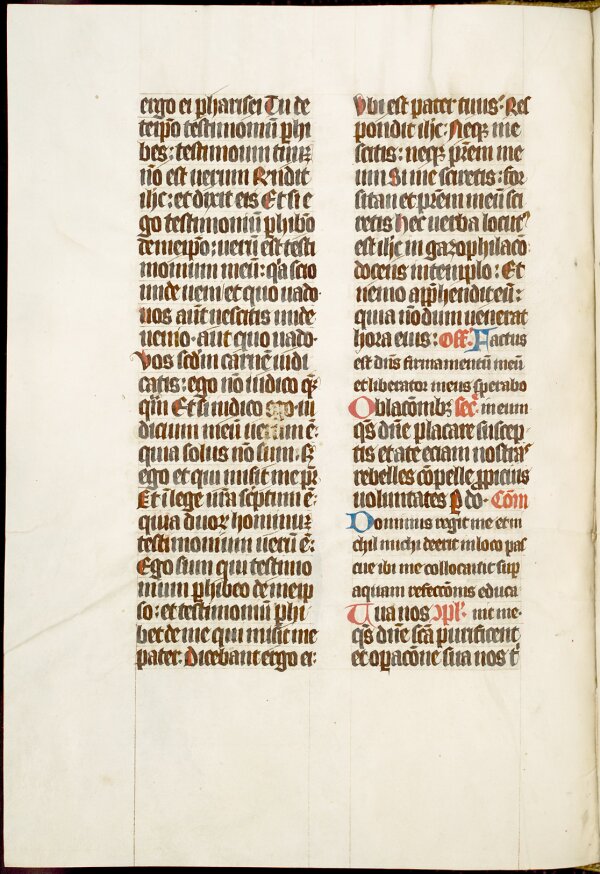 ergo ei pharisei Tu de
teip̄o testimoniū phi
bes: testimonium tuuꝫ
nō est uerum Rn̄dit
ih̄c: et dixit eis Et si e
go testimoniū phibō
de meip̄o: uerū est testi
monium meū: q̄a scio
unde ueni et quo uado·
uos aūt nescitis unde
uenio· aut quo uado·
Vos scd̄m carnē iudi
catis: ego nō iudico qꝫ
q̄m Et si iudico ego iu
dicium meū uerum ē:
quia solus nō sum· sꝫ
ego et qui misit me pr̄
Et ī lege ur̄a scptum ē:
quia duoꝝ hominuꝫ
testimonium uerū ē:
Ego sum qui testimo
nium phibeo de meip
so: et testimoniū phi
bet de me qui misit me
pater· Dicebant ergo ei:
Vbi est pater tuus· Res
pondit ih̄c· Neqꝫ me
scitis: neqꝫ pr̄em me
um Si me sciretis: for
sitan et pr̄em meū sci
retis Hec uerba locutꝰ
est ih̄c in gazophilacō
docens in templo: Et
nemo app̄hendit eū:
quia nōdum uenerat
hora eius: Off̄. Factus
est dn̄s firmamentū meū
et liberator meus sperabo
Oblacōnibꝫ sec̄r. meum
qs̄ dn̄e placare suscep
tis et ate eciam nostras
rebelles cōpelle ꝓpicius
uoluntates ꝑ do· Cōm
Dominus regit me et ni
chil michi deerit in loco pas
cue ibi me collocauit sup
aquam refeccōnis educa
Tua nos ꝯpl̄· nit me·
qs̄ dn̄e scā purificent
et opacōne sua nos t̄